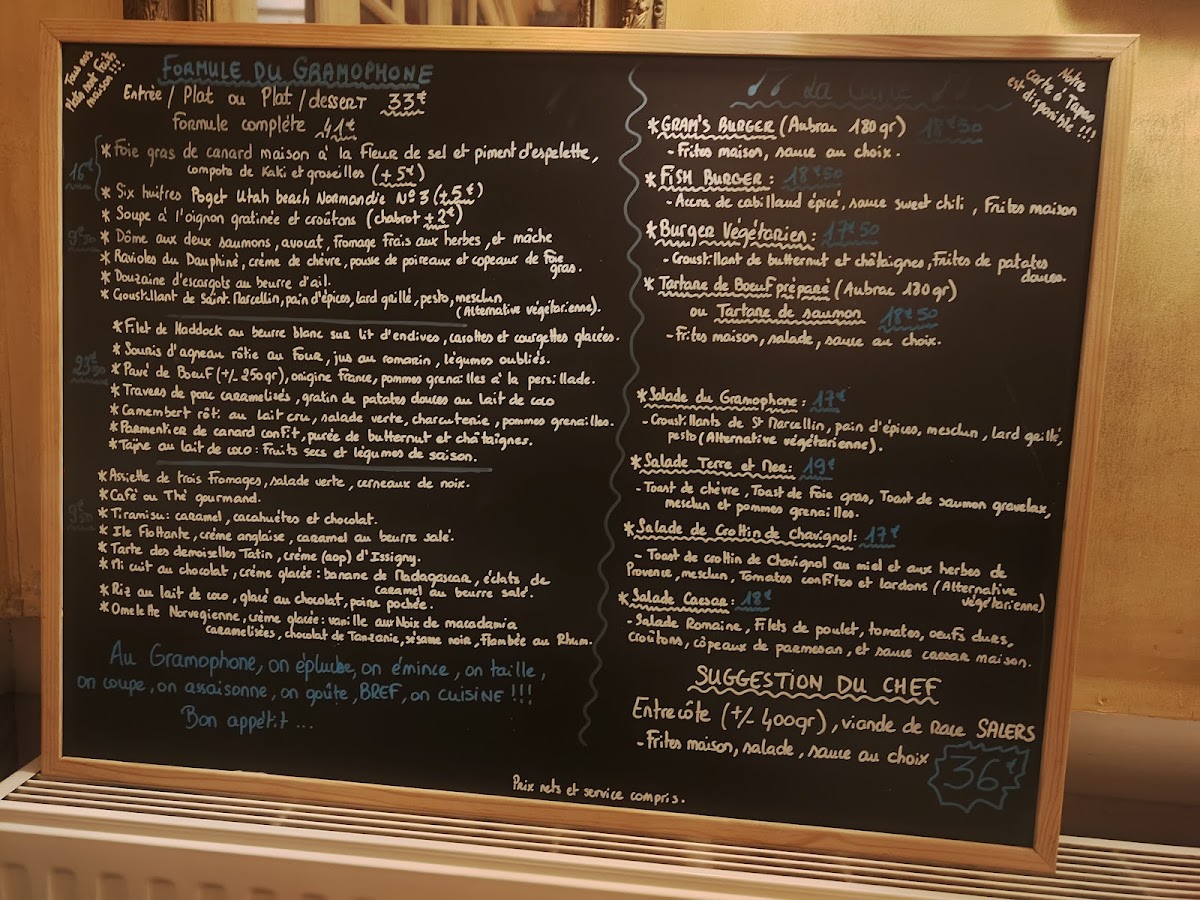 Tous nos
Plats sont faits
maison !!!
FORMULE DU GRAMOPHONE
Entrée / Plat ou Plat / dessert 33€
Formule complète 41€
16€
* Foie gras de canard maison à la Fleur de sel et piment d'espelette,
compote de Kaki et groseilles (+5€)
* Six huîtres Poget Utah beach Normandie N°3 (+5€)
* Soupe à l'oignon gratinée et croûtons (chabrot +2€)
9€50
* Dôme aux deux saumons, avocat, fromage frais aux herbes, et mâche
* Ravioles du Dauphiné, crème de chèvre, pousse de poireaux et copeaux de foie
gras.
* Douzaine d'escargots au beurre d'ail.
* Croustillant de Saint Marcellin, pain d'épices, lard grillé, pesto, mesclun
(Alternative végétarienne).
* Filet de Haddock au beurre blanc sur lit d'endives, carottes et courgettes glacées.
* Souris d'agneau rôtie au Four, jus au romarin, légumes oubliés.
23€50
* Pavé de Boeuf (+/- 250gr), origine France, pommes grenailles à la persillade.
* Travers de porc caramelisés, gratin de patates douces au lait de coco
* Camembert rôti au lait cru, salade verte, charcuterie, pommes grenailles.
* Parmentier de canard confit, purée de butternut et châtaignes.
* Tajine au lait de coco : Fruits secs et légumes de saison.
* Assiette de trois Fromages, salade verte, cerneaux de noix.
* Café ou Thé gourmand.
9€50
* Tiramisu : caramel, cacahuètes et chocolat.
* Ile Flottante, crème anglaise, caramel au beurre salé.
* Tarte des demoiselles Tatin, crème (aop) d'Issigny.
* Mi cuit au chocolat, crème glacée : banane de Madagascar, éclats de
caramel au beurre salé.
* Riz au lait de coco, glacé au chocolat, poire pochée.
* Omelette Norvegienne, crème glacée : vanille aux Noix de macadamia
caramelisées, chocolat de Tanzanie, sésame noir, Flambée au Rhum.
Au Gramophone, on épluche, on émince, on taille,
on coupe, on assaisonne, on goûte, BREF, on CUISINE !!!
Bon appétit ...
La Carte
Notre
Carte à Tapas
est disponible !!!
* GRAM'S BURGER (Aubrac 180gr) 18€50
- Frites maison, sauce au choix.
* FISH BURGER : 18€50
- Accra de cabillaud épicé, sauce sweet chili, Frites maison
* Burger Végétarien : 17€50
- Croustillant de butternut et châtaignes, Frites de patates
douces.
* Tartare de Boeuf préparé (Aubrac 180gr)
ou Tartare de saumon 18€50
- Frites maison, salade, sauce au choix.
* Salade du Gramophone : 17€
- Croustillants de St Marcellin, pain d'épices, mesclun, lard grillé,
pesto (Alternative végétarienne).
* Salade Terre et Mer : 19€
- Toast de chèvre, Toast de foie gras, Toast de saumon gravelax,
mesclun et pommes grenailles.
* Salade de Crottin de Chavignol : 17€
- Toast de crottin de Chavignol au miel et aux herbes de
Provence, mesclun, Tomates confites et lardons (Alternative
végétarienne)
* Salade Caesar : 18€
- Salade Romaine, Filets de poulet, tomates, oeufs durs,
croûtons, côpeaux de parmesan, et sauce caesar maison.
SUGGESTION DU CHEF
Entrecôte (+/- 400gr), viande de Race SALERS
- Frites maison, salade, sauce au choix
36€
Prix nets et service compris.